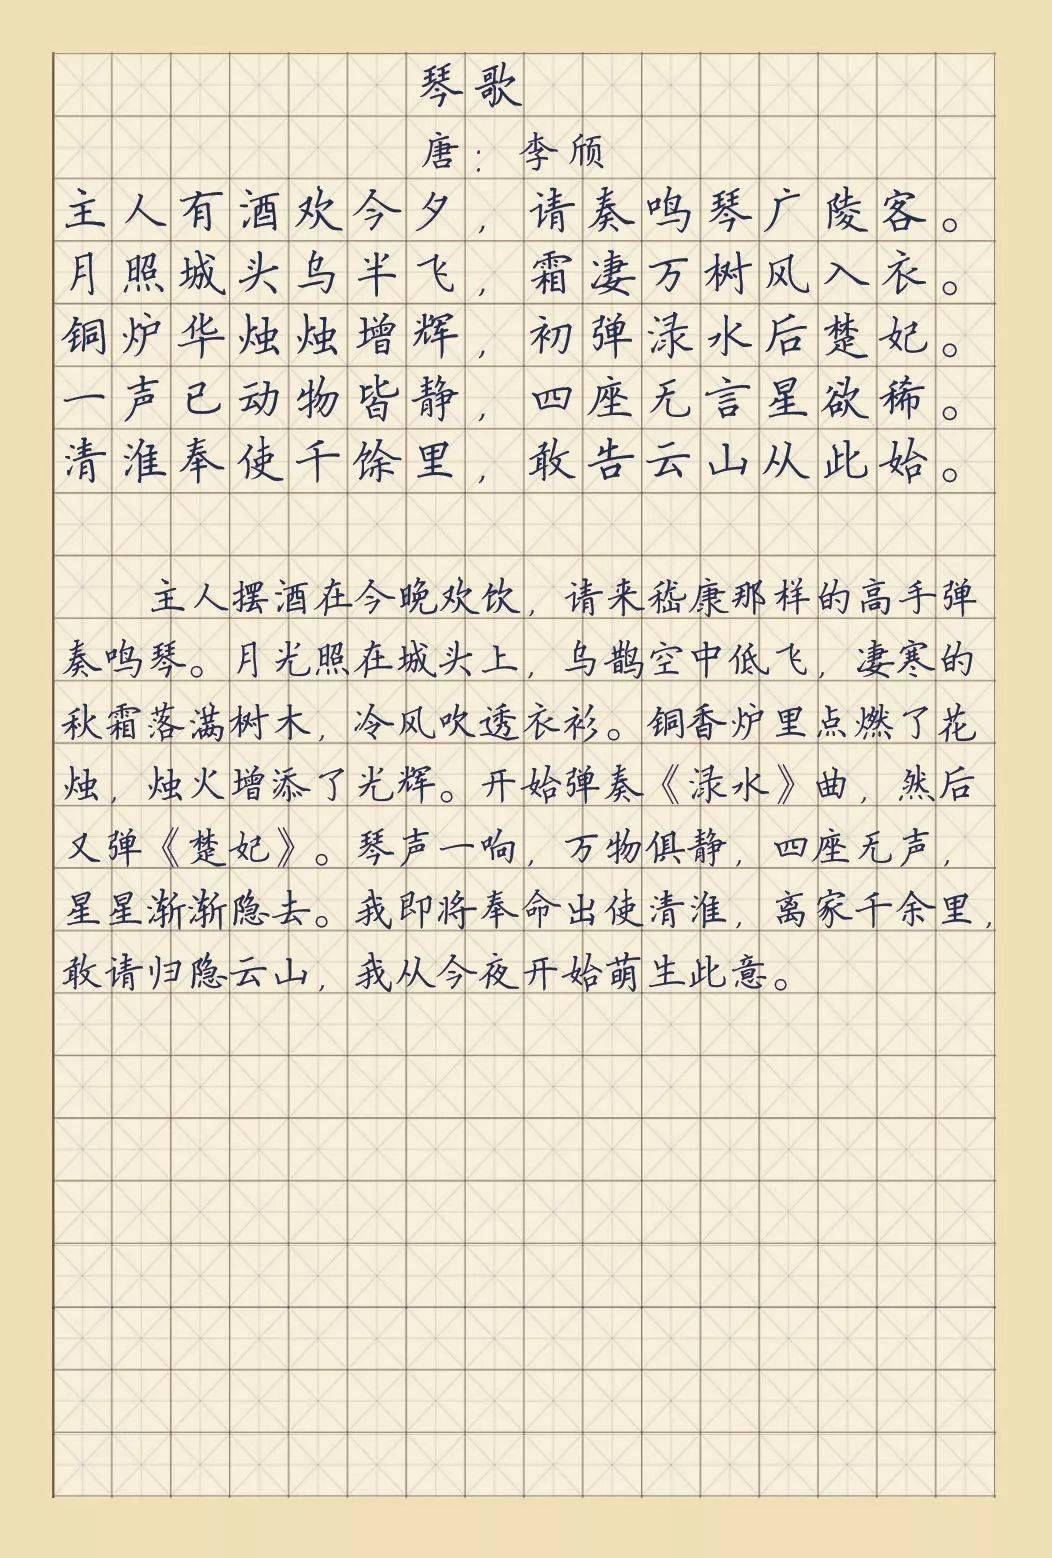 琴歌
唐：李颀
主人有酒欢今夕，请奏鸣琴广陵客。
月照城头乌半飞，霜凄万树风入衣。
铜炉华烛烛增辉，初弹渌水后楚妃。
一声已动物皆静，四座无言星欲稀。
清淮奉使千馀里，敢告云山从此始。
主人摆酒在今晚欢饮，请来嵇康那样的高手弹
奏鸣琴。月光照在城头上，乌鹊空中低飞，凄寒的
秋霜落满树木，冷风吹透衣衫。铜香炉里点燃了花
烛，烛火增添了光辉。开始弹奏《渌水》曲，然后
又弹《楚妃》。琴声一响，万物俱静，四座无声，
星星渐渐隐去。我即将奉命出使清淮，离家千余里，
敢请归隐云山，我从今夜开始萌生此意。